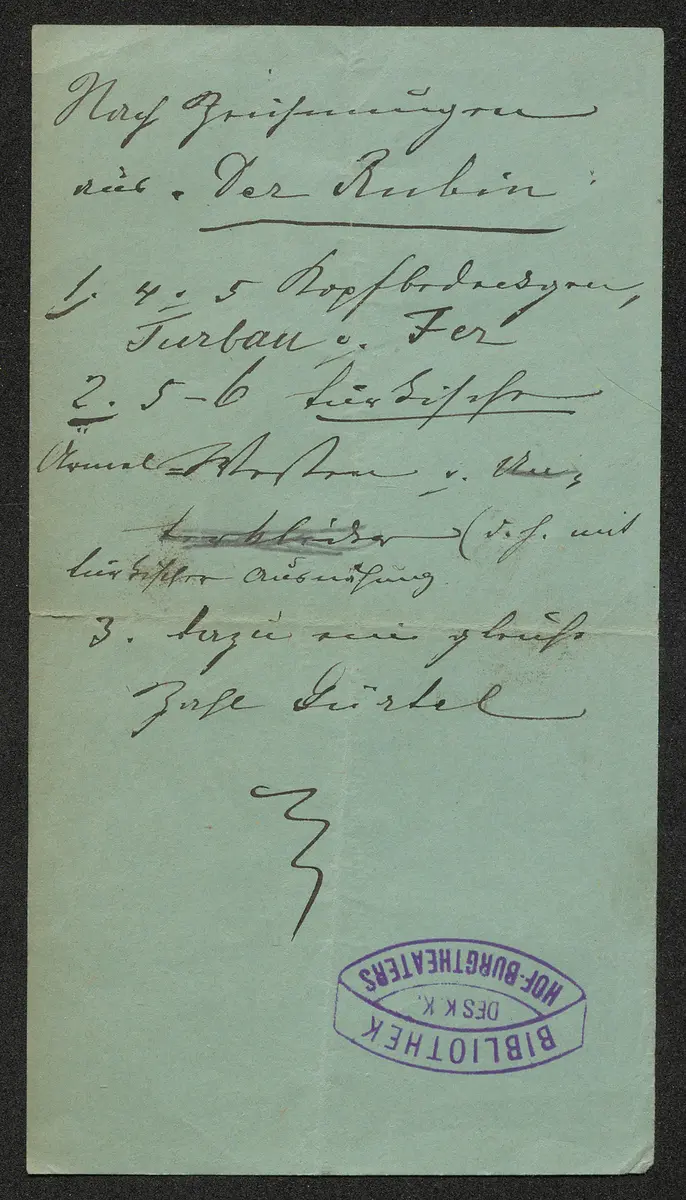 Nach Zeichnungen
aus "Der Rubin"
1. 4 - 5 Kopfbedeckgen,
Turban u. Fez
2. 5-6 türkische
Ärmel-Westen u. Un-
terkleider (d. h. mit
türkischer Ausnähung
3. dazu eine gleiche
Zahl Gürtel
BIBLIOTHEK
DES K. K.
HOF-BURGTHEATERS